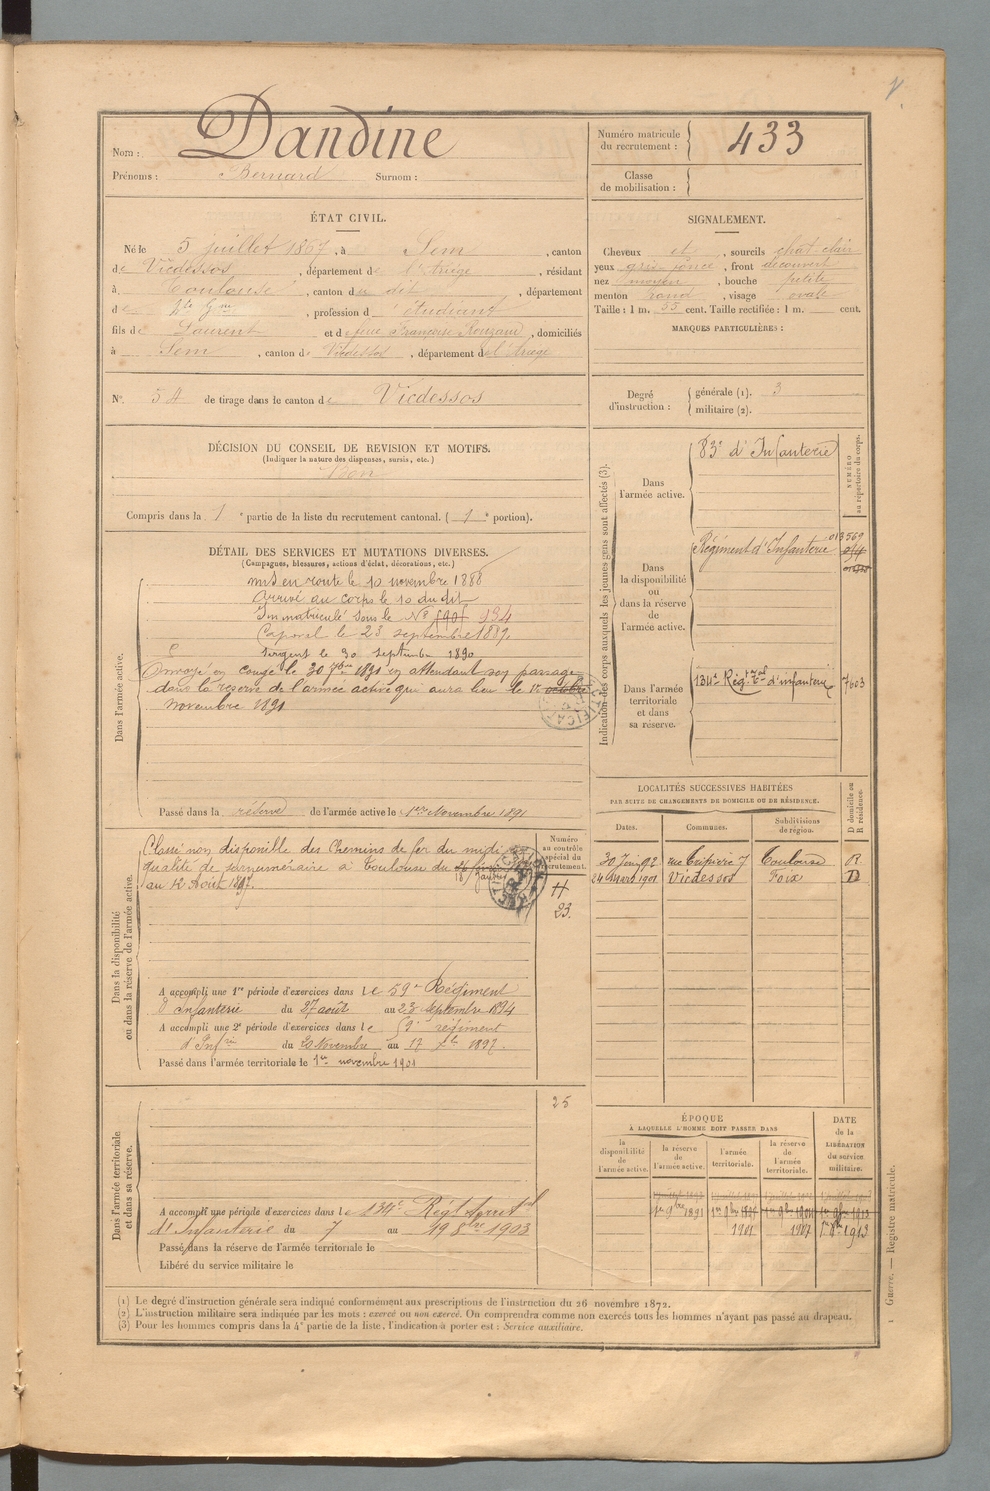 Nom : Dandine
Prénoms : Bernard Surnom :
Numéro matricule du recrutement : 433
Classe de mobilisation :
ÉTAT CIVIL.
Né le 5 juillet 1867, à Sem, canton
de Vicdessos, département de l'Ariège, résidant
à Toulouse, canton du dit, département
de Hte Gne, profession d étudiant
fils de Laurent et de feue Françoise Rouzaud, domiciliés
à Sem, canton de Vicdessos, département de l'Ariège
N° 54 de tirage dans le canton de Vicdessos
SIGNALEMENT.
Cheveux et, sourcils chat clair
yeux gris foncé, front découvert
nez moyen, bouche petite
menton rond, visage ovale
Taille : 1 m. 55 cent. Taille rectifiée : 1 m. cent.
MARQUES PARTICULIÈRES :
Degré d'instruction : générale (1). 3
militaire (2).
DÉCISION DU CONSEIL DE REVISION ET MOTIFS.
(Indiquer la nature des dispenses, sursis, etc.)
Bon
Compris dans la 1e partie de la liste du recrutement cantonal. (1e portion).
DÉTAIL DES SERVICES ET MUTATIONS DIVERSES.
(Campagnes, blessures, actions d'éclat, décorations, etc.)
Dans l'armée active.
mis en route le 10 novembre 1888
Arrivé au corps le 10 du dit
Immatriculé sous le N° 934
Caporal le 23 septembre 1889.
Sergent le 30 septembre 1890
Envoyé en congé le 30 7bre 1891 en attendant son passage
dans la réserve de l'armée active qui aura lieu le 1er octobre
novembre 1891
Passé dans la réserve de l'armée active le 1er Novembre 1891
Indication des corps auxquels les jeunes gens sont affectés (3).
NUMÉRO au répertoire du corps.
Dans l'armée active. 83e d'Infanterie
Dans la disponibilité ou dans la réserve de l'armée active. Régiment d'Infanterie 013569
Dans l'armée territoriale et dans sa réserve. 134e Régt Tal d'infanterie 7603
LOCALITÉS SUCCESSIVES HABITÉES
PAR SUITE DE CHANGEMENTS DE DOMICILE OU DE RÉSIDENCE.
Dates. Communes. Subdivisions de région. D domicile ou R résidence.
30 Juin 92 rue Tripière 7 Toulouse R
24 mars 1901 Vicdessos Foix D
Dans la disponibilité ou dans la réserve de l'armée active.
Numéro au contrôle spécial du recrutement.
Classé non disponible des Chemins de fer du midi
qualité de surnuméraire à Toulouse du
au 12 Août 1897.
23.
A accompli une 1re période d'exercices dans le 59e Régiment
d'Infanterie du 27 août au 23 septembre 1894
A accompli une 2e période d'exercices dans le 59e régiment
d'Infrie du 20 Novembre au 17 Xbre 1897.
Passé dans l'armée territoriale le 1er novembre 1901
Dans l'armée territoriale et dans sa réserve.
25
A accompli une période d'exercices dans le 134e Régt Territal
d'Infanterie du 7 au 19 8bre 1903
Passé dans la réserve de l'armée territoriale le
Libéré du service militaire le
ÉPOQUE
À LAQUELLE L'HOMME DOIT PASSER DANS
la disponibilité de l'armée active. la réserve de l'armée active. l'armée territoriale. la réserve de l'armée territoriale.
DATE de la LIBÉRATION du service militaire.
1er 9bre 1891
1901 1907 1913
(1) Le degré d'instruction générale sera indiqué conformément aux prescriptions de l'instruction du 26 novembre 1872.
(2) L'instruction militaire sera indiquée par les mots : exercé ou non exercé. On comprendra comme non exercés tous les hommes n'ayant pas passé au drapeau.
(3) Pour les hommes compris dans la 4e partie de la liste, l'indication à porter est : Service auxiliaire.
Guerre. — Registre matricule.